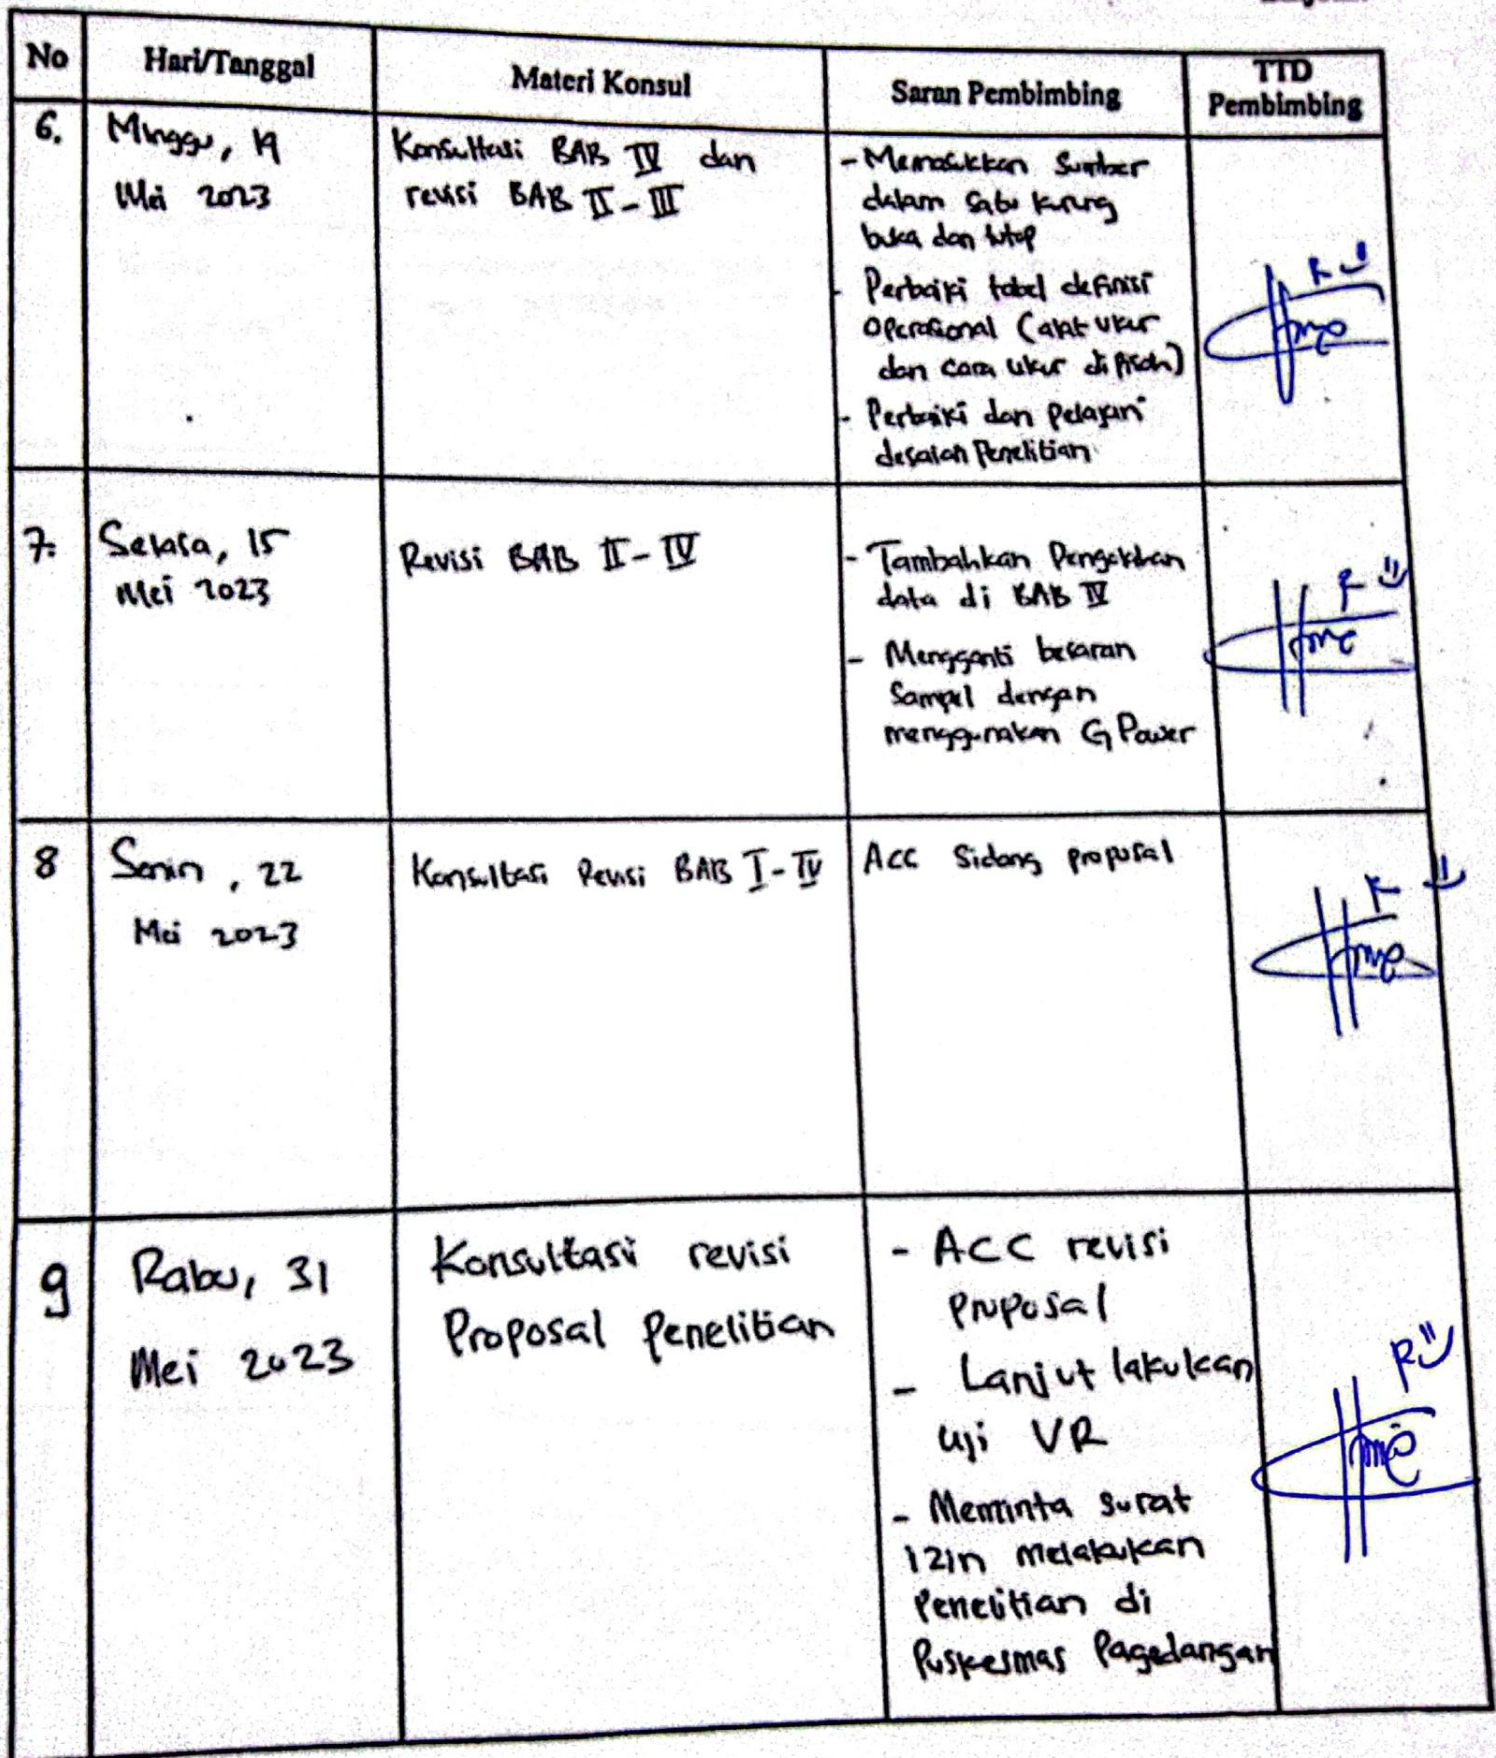 No
Hari/Tanggal
Materi Konsul
Saran Pembimbing
TTD
Pembimbing
6.
Minggu, 19
Mei 2023
Konsultasi BAB IV dan
revisi BAB II - III
- Memasukkan sumber
dalam satu kurung
buka dan tutup
- Perbaiki tabel definisi
Operasional (alat ukur
dan cara ukur dipisah)
- Perbaiki dan pelajari
desaian Penelitian
7.
Selasa, 15
Mei 2023
Revisi BAB II - IV
- Tambahkan Pengolahan
data di BAB IV
- Mengganti besaran
Sampel dengan
menggunakan G Power
8
Senin, 22
Mei 2023
Konsultasi Revisi BAB I - IV
Acc Sidang proposal
9
Rabu, 31
Mei 2023
Konsultasi revisi
Proposal Penelitian
- ACC revisi
proposal
- Lanjut lakukan
uji VR
- Meminta surat
izin melakukan
Penelitian di
Puskesmas Pagedangan